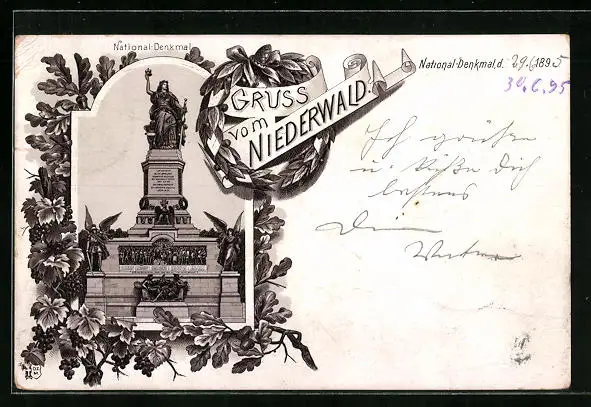 National-Denkmal
GRUSS
vom
NIEDERWALD!
National-Denkmal, d. 29.6.1895
30.6.95
Ich grüße
u. küße Dich
bestens
Dein